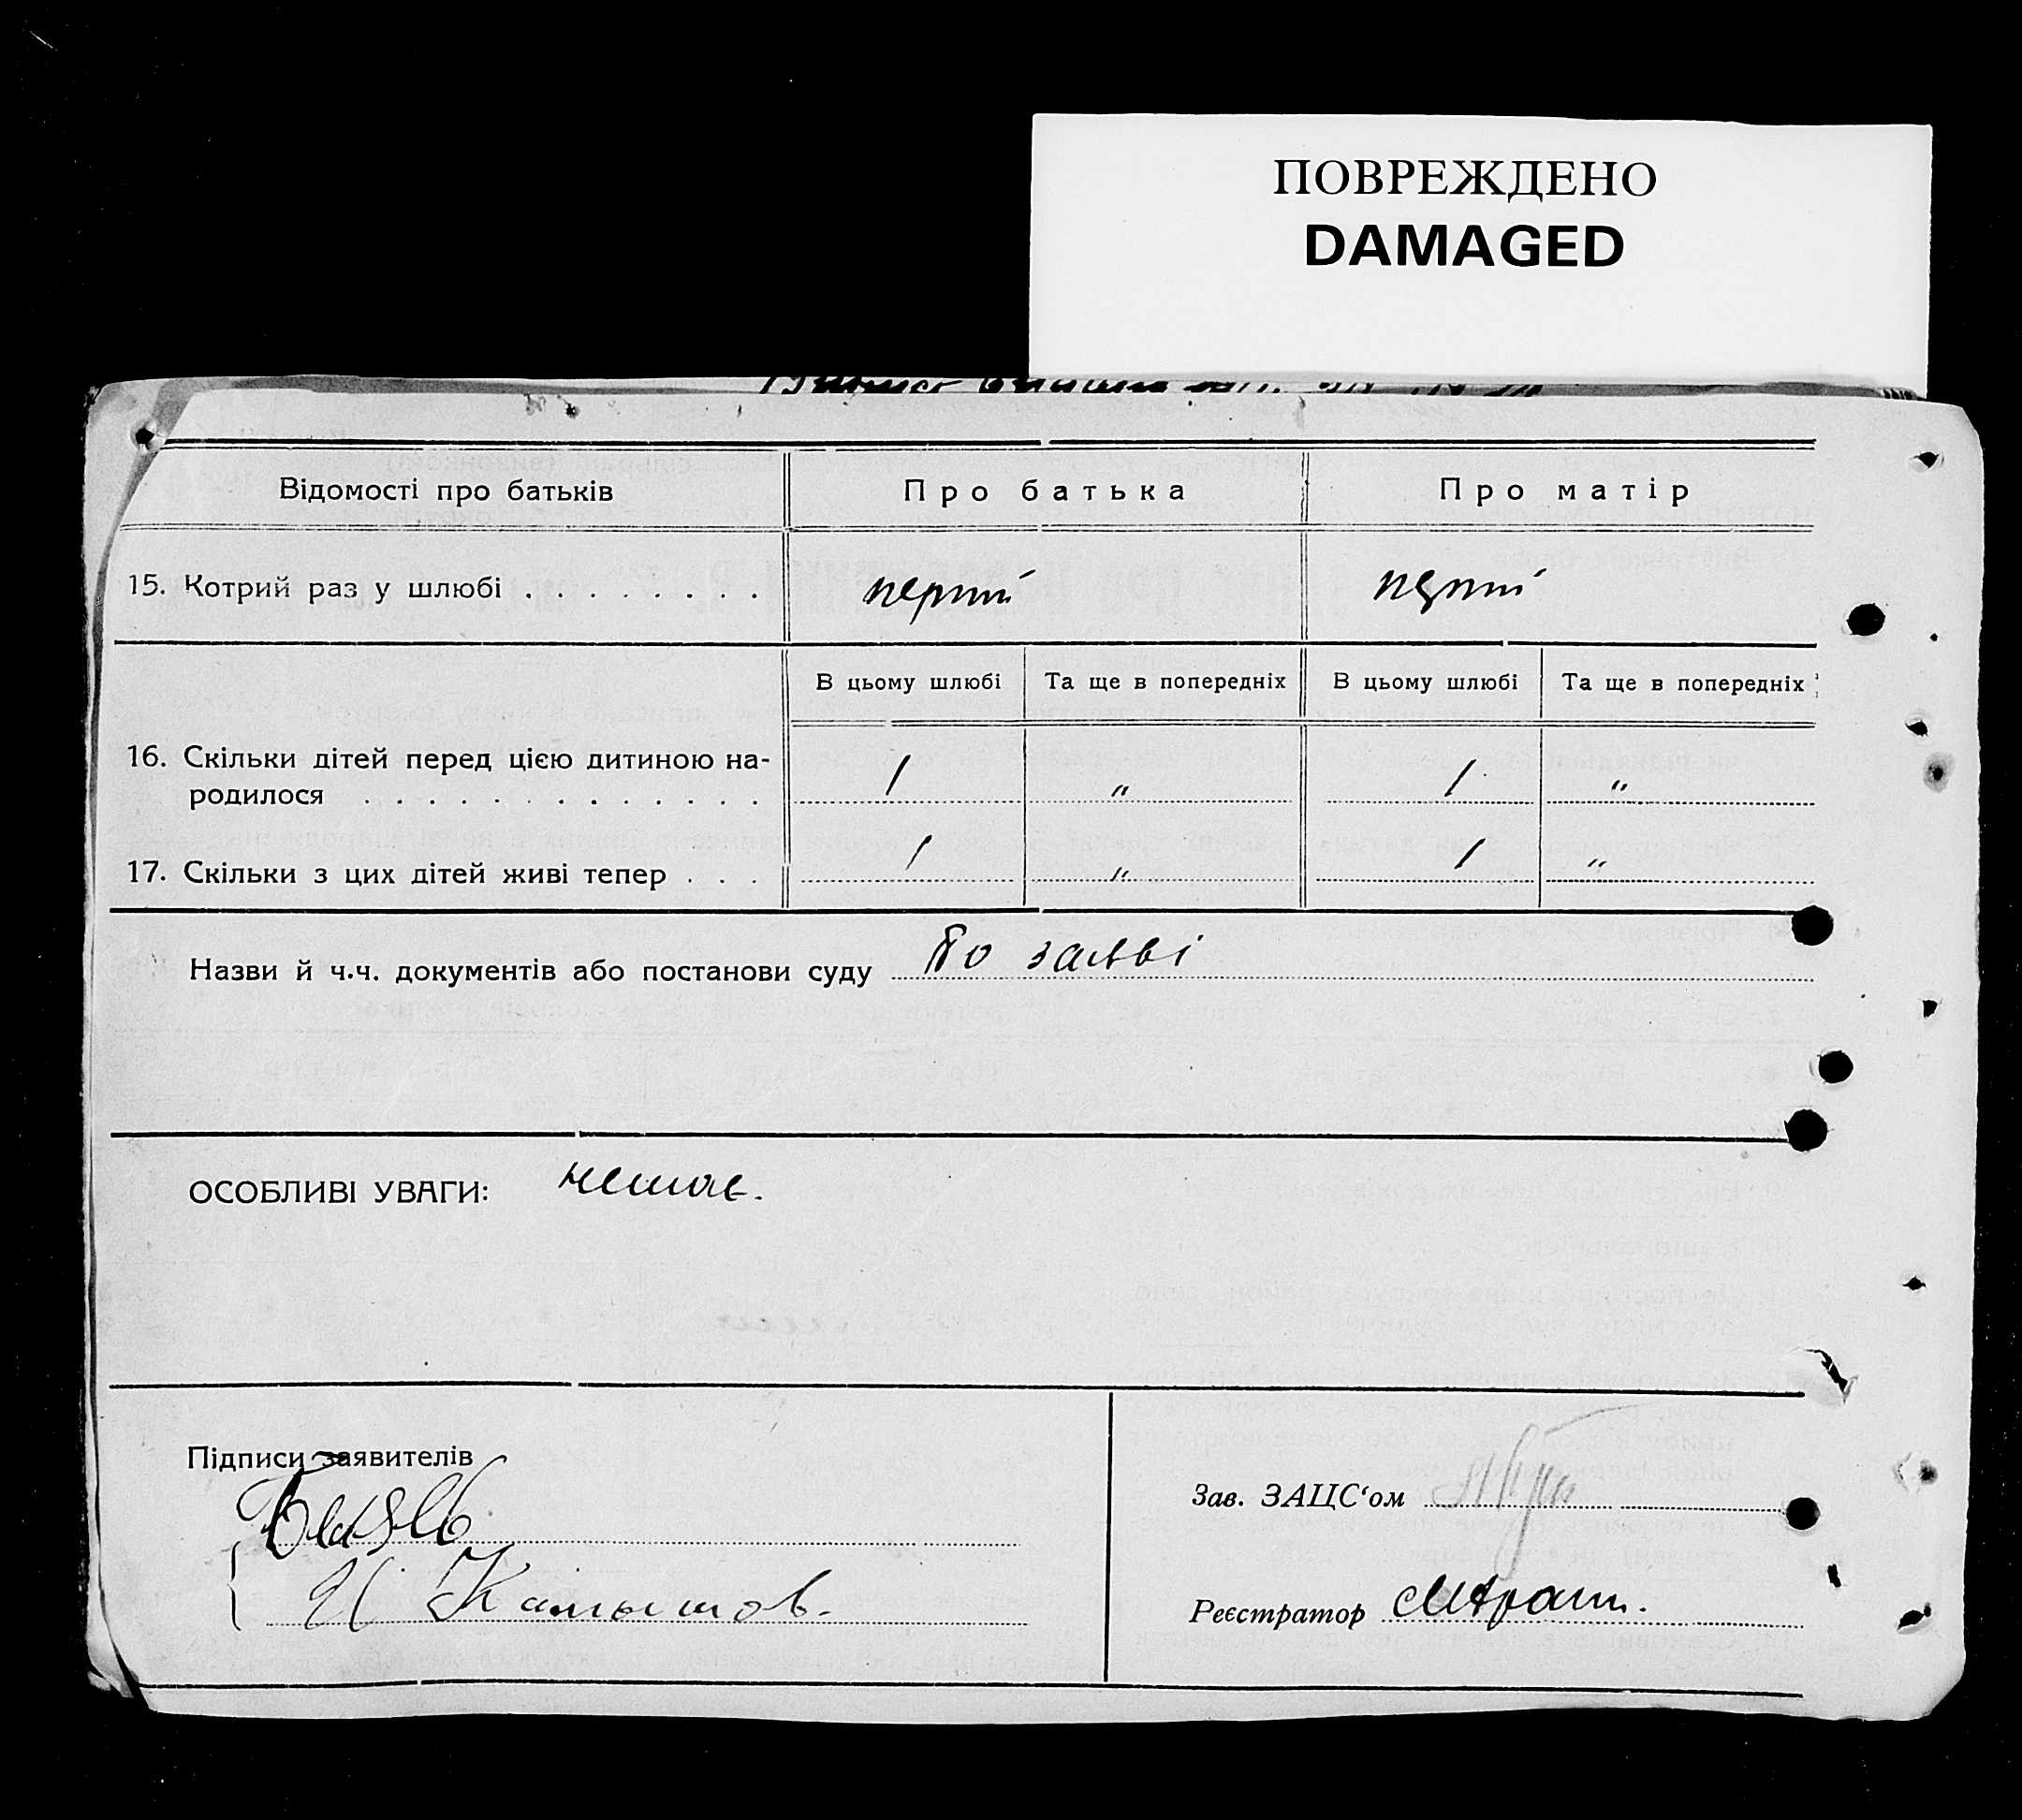 ПОВРЕЖДЕНО
DAMAGED
Відомості про батьків
Про батька
Про матір
15. Котрий раз у шлюбі . . . . . . . .
перший
перший
В цьому шлюбі
Та ще в попередніх
В цьому шлюбі
Та ще в попередніх
16. Скільки дітей перед цією дитиною на-
родилося . . . . . . . . . . . . .
1
"
1
"
17. Скільки з цих дітей живі тепер . . .
1
"
1
"
Назви й ч.ч. документів або постанови суду По заяві
ОСОБЛИВІ УВАГИ: немає.
Підписи заявителів
И Камышов.
Зав. ЗАЦС'ом
Реєстратор